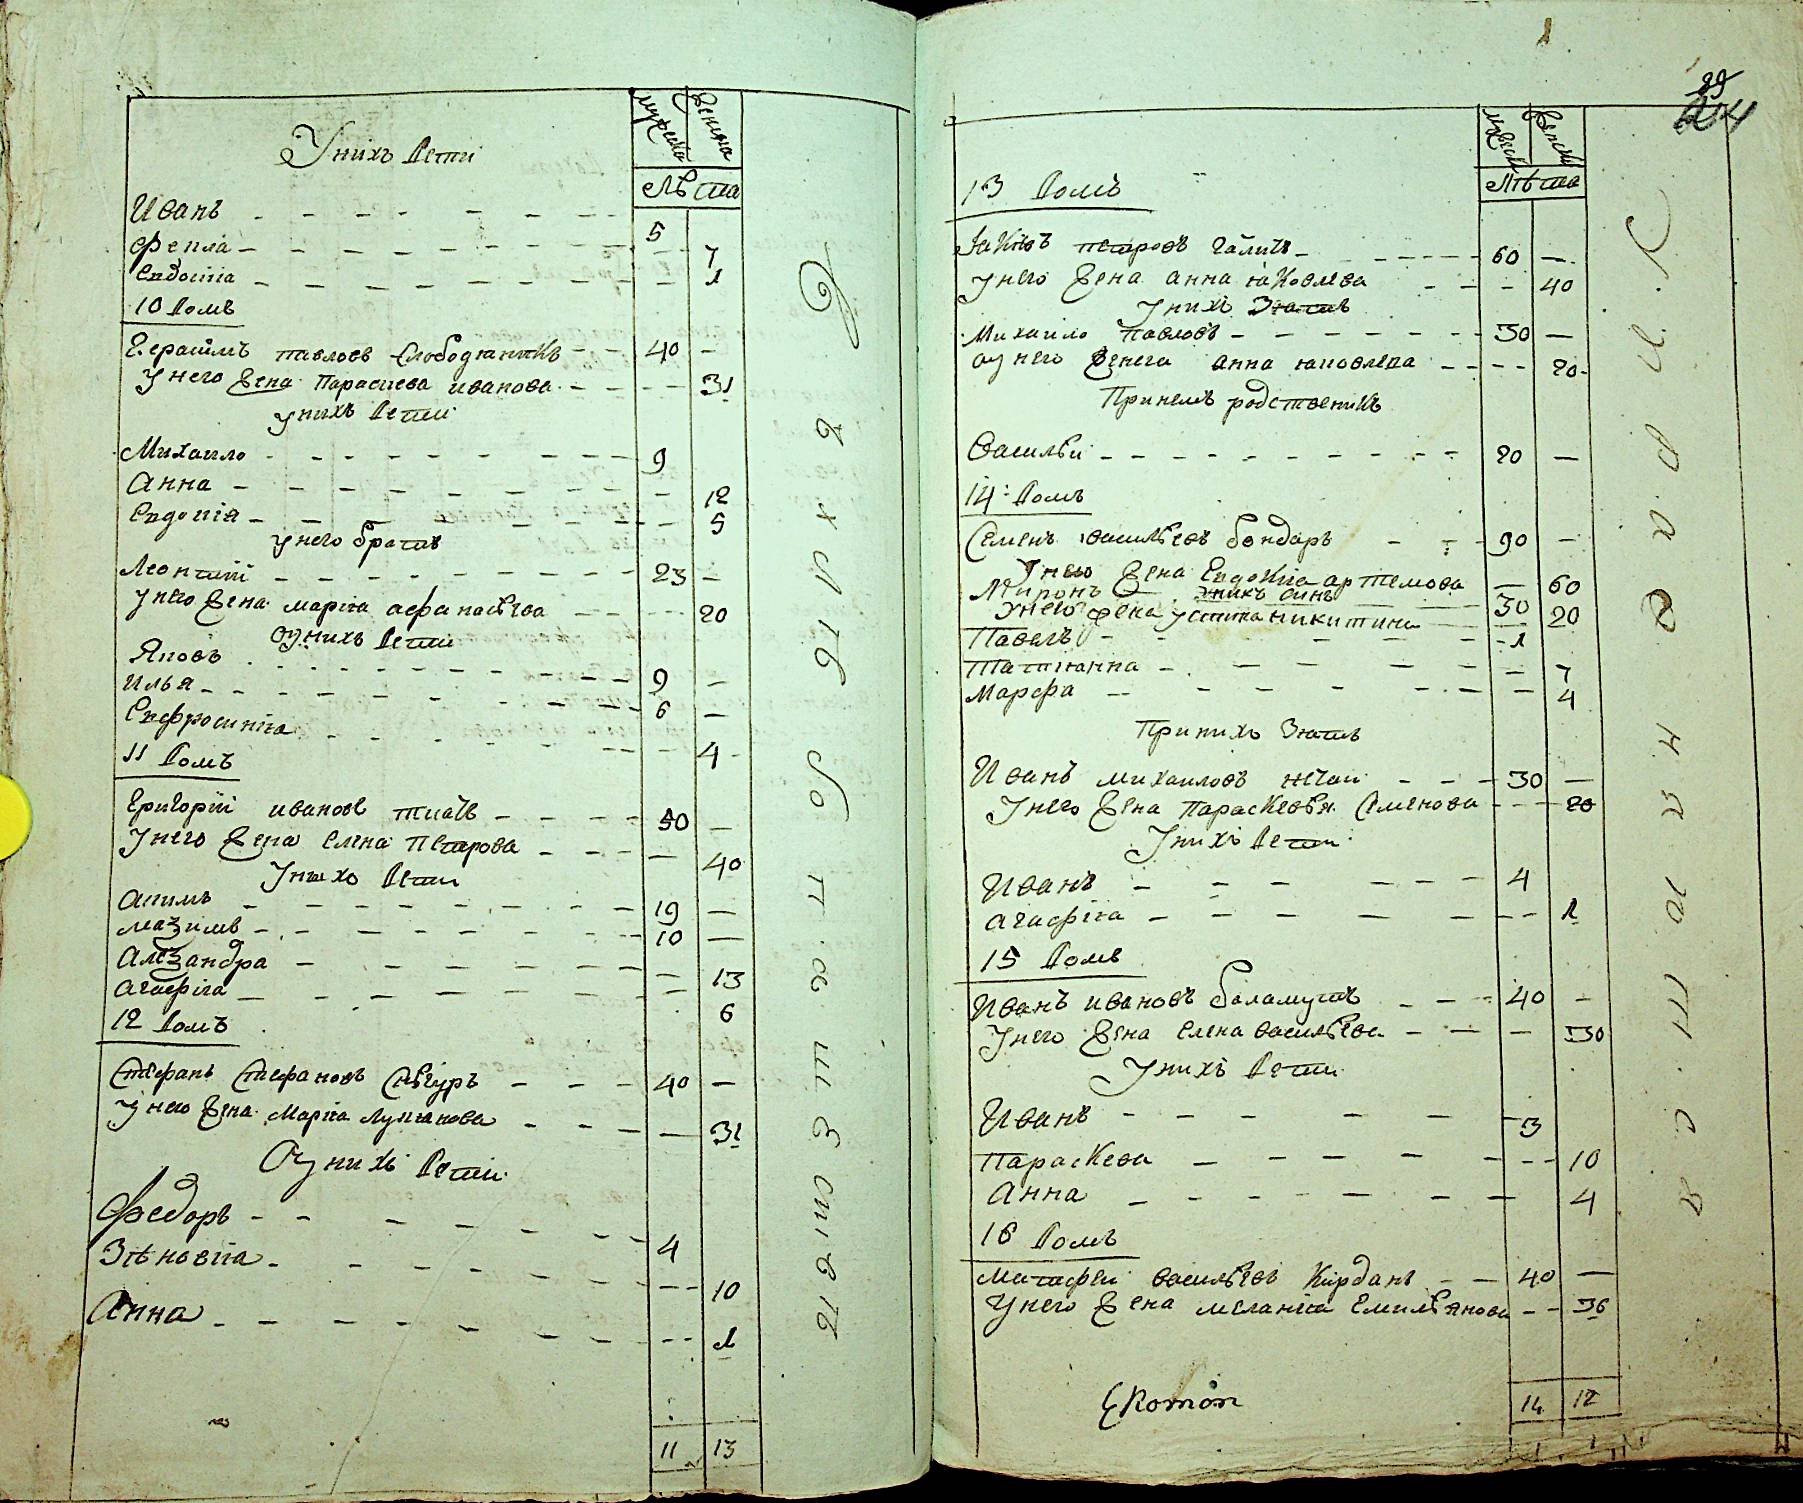 У нихъ дети
мужеска
женска
лѣта
Иванъ 5
Фекла 7
Евдокіа 1
10 домъ
Герасимъ Павловъ Слободяникъ 40
У него жена Параскева Иванова 31
У нихъ дети
Михаило 9
Анна 12
Евдокія 5
У него братъ
Леонтій 23
У него жена Маріа Афанасѣева 20
У нихъ дети
Яковъ 9
Илья 6
Евфросиніа 4
11 домъ
Григорій Ивановъ 50
У него жена Елена Петрова 40
У нихъ дети
Акимъ 19
Маѯимъ 10
Алеѯандра 13
Агафіа 6
12 домъ
Стефанъ Стефановъ Снѣгуръ 40
У него жена Маріа Лукіанова 31
У нихъ дети
Федоръ 4
Зѣновіа 10
Анна 1
11 13
29
24
мужеск
женска
лѣта
13 домъ
Петровъ Галичъ 60
У него жена Анна Іаковлева 40
У нихъ зять
Михаило Павловъ 30
У него жена Анна Іаковлева 20
При немъ родственикъ
Василѣй 20
14 домъ
Семенъ Василѣевъ Бондаръ 90
У него жена Евдокіа Артемова 60
У нихъ синъ
Миронъ 30
У него жена Устина Никитина 20
Павелъ 1
Татіанна 7
Марфа 4
При нихъ зять
Иванъ Михаиловъ 30
У него жена Параскевѣя Семенова 20
У нихъ дети
Иванъ 4
Агафіа 1
15 домъ
Иванъ Ивановъ Баламутъ 40
У него жена Елена Василѣева 30
У нихъ дети
Иванъ 3
Параскева 10
Анна 4
16 домъ
Матфей Василѣевъ Кирданъ 40
У него жена Меланіа Емилѣянова 36
14 12